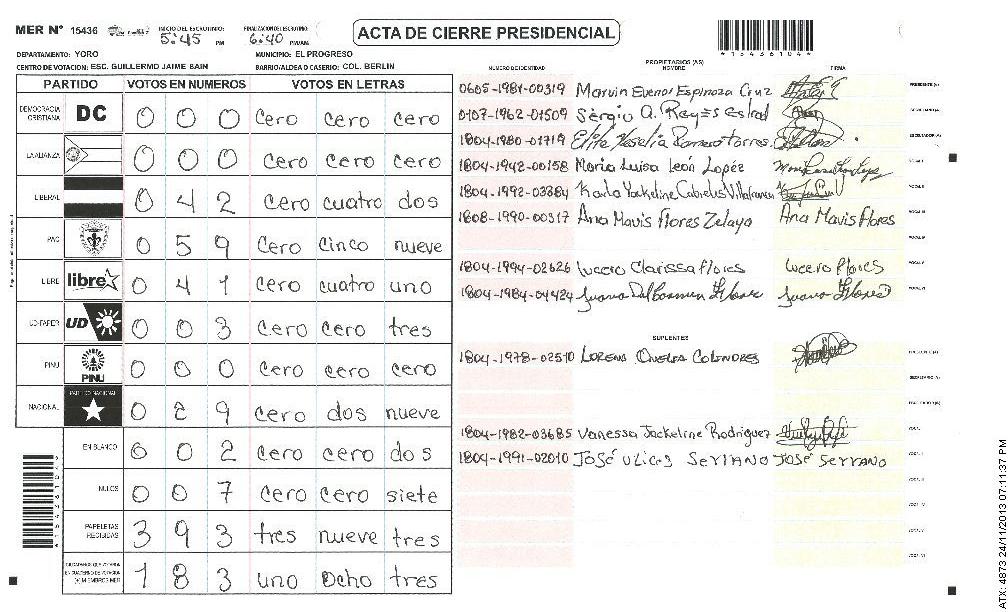 MER Nº 15436 INICIO DEL ESCRUTINIO: 5:45 PM FINALIZACION DEL ESCRUTINIO: 6:40 PM/AM. ACTA DE CIERRE PRESIDENCIAL
DEPARTAMENTO: YORO MUNICIPIO: EL PROGRESO
CENTRO DE VOTACION: ESC. GUILLERMO JAIME BAIN BARRIO/ALDEA O CASERIO: COL. BERLIN
PARTIDO VOTOS EN NUMEROS VOTOS EN LETRAS
DEMOCRACIA CRISTIANA DC 0 0 0 cero cero cero
LA ALIANZA 0 0 0 cero cero cero
LIBERAL 0 4 2 cero cuatro dos
PAC 0 5 9 cero cinco nueve
LIBRE libre 0 4 1 cero cuatro uno
UD-FAPER UD 0 0 3 cero cero tres
PINU PINU 0 0 0 cero cero cero
NACIONAL PARTIDO NACIONAL 0 2 9 cero dos nueve
EN BLANCO 0 0 2 cero cero dos
NULOS 0 0 7 cero cero siete
PAPELETAS RECIBIDAS 3 9 3 tres nueve tres
CIUDADANOS QUE VOTARON EN CUADERNO DE VOTACION (+) MIEMBROS MER 1 8 3 uno ocho tres
*15436104*
PROPIETARIOS (AS)
NUMERO DE IDENTIDAD NOMBRE FIRMA
0605-1981-00319 Marvin Evenor Espinoza Cruz PRESIDENTE (A)
0107-1962-01509 Sergio A. Reyes SECRETARIO (A)
1804-1980-01719 Romero Torres ESCRUTADOR (A)
1804-1942-00158 Maria Luisa León Lopéz VOCAL I
1804-1992-03384 Karla Yackeline VOCAL II
1808-1990-00317 Ana Mavis Flores Zelaya Ana Mavis Flores VOCAL III
VOCAL IV
1804-1994-02626 Lucero Clarissa flores Lucero flores VOCAL V
1804-1984-04424 Juana Del Carmen Flores Juana Flores VOCAL VI
SUPLENTES
1804-1978-02510 Lorena PRESIDENTE (A)
SECRETARIO (A)
ESCRUTADOR (A)
1804-1982-03685 Vanessa Jackeline Rodriguez VOCAL I
1804-1991-02010 José Ulices Serrano José Serrano VOCAL II
VOCAL III
VOCAL IV
VOCAL V
VOCAL VI
ATX: 4873 24/11/2013 07:11:37 PM